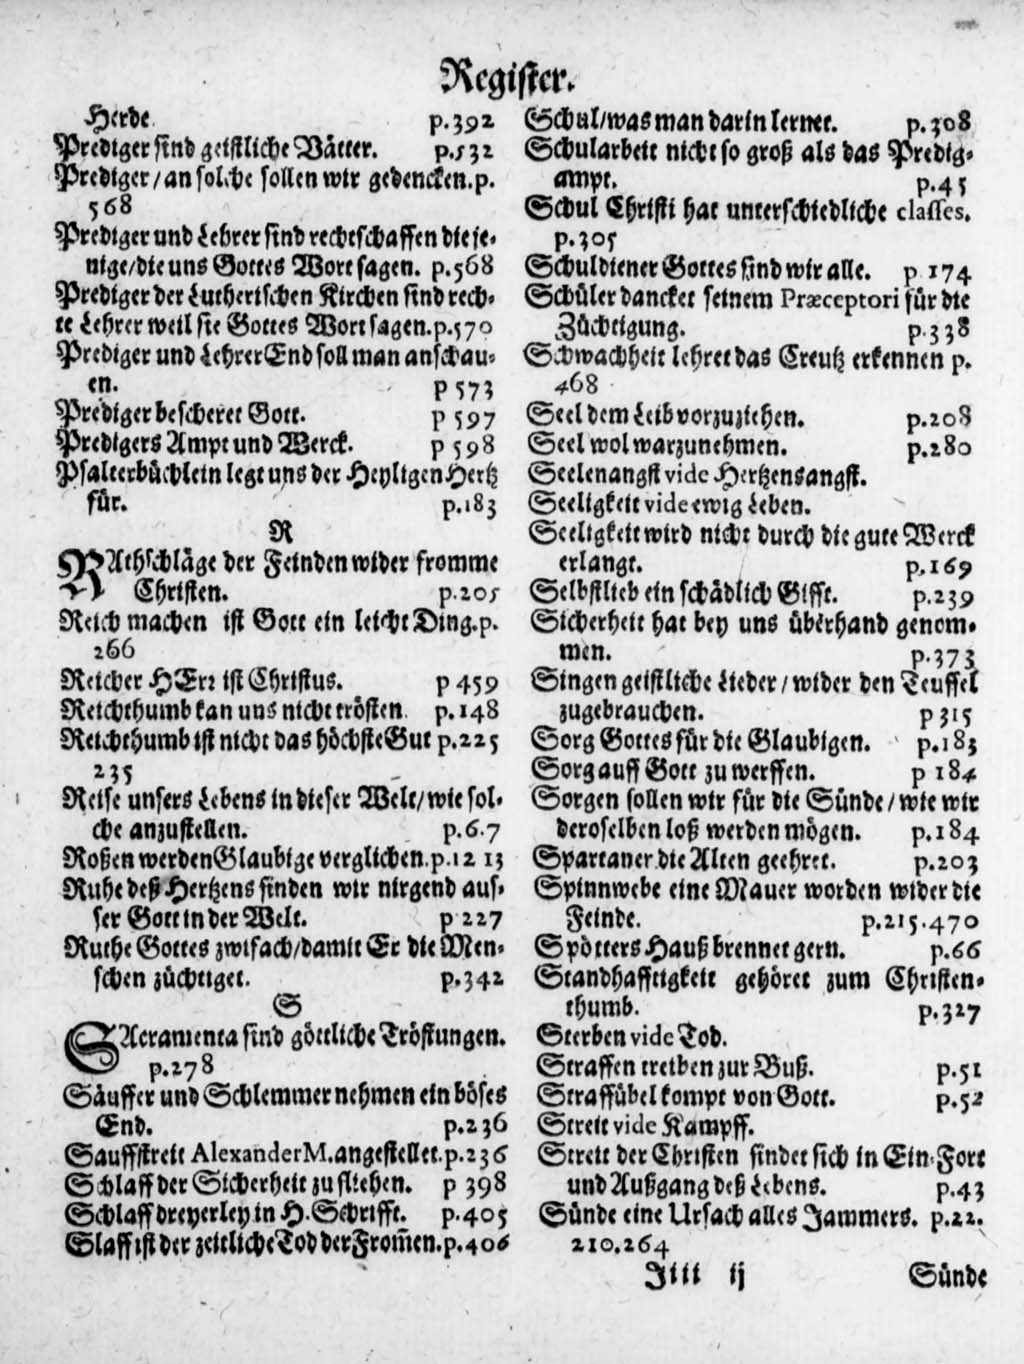 Register.
Herde p.392
Prediger sind geistliche Vätter. p.532
Prediger / an solche sollen wir gedencken. p.
568
Prediger und Lehrer sind rechtschaffen die je-
nige / die uns Gottes Wort sagen. p.568
Prediger der Lutherischen Kirchen sind rech-
te Lehrer weil sie Gottes Wort sagen. p.570
Prediger und Lehrer End soll man anschau-
en. p 573
Prediger bescheret Gott. p 597
Predigers Ampt und Werck. p 598
Psalterbüchlein legt uns der Heyligen Hertz
für. p.183
R
RAthschläge der Feinden wider fromme
Christen. p.205
Reich machen ist Gott ein leicht Ding. p.
266
Reicher HErr ist Christus. p 459
Reichthumb kan uns nicht trösten p.148
Reichthumb ist nicht das höchste Gut p.225
235
Reise unsers Lebens in dieser Welt / wie sol-
che anzustellen. p.6.7
Roßen werden Glaubige verglichen. p.12 13
Ruhe deß Hertzens finden wir nirgend aus-
ser Gott in der Welt. p 227
Ruthe Gottes zwifach / damit Er die Men-
schen züchtiget. p.342
S
SAcramenta sind göttliche Tröstungen.
p.278
Säuffer und Schlemmer nehmen ein böses
End. p.236
Sauffstreit Alexander M. angestellet. p.236
Schlaff der Sicherheit zu fliehen. p 398
Schlaff dreyerley in H. Schrifft. p.405
Slaff ist der zeitliche Tod der From̄en. p.406
Schul / was man darin lernet. p.308
Schularbeit nicht so groß als das Predig-
ampt. p.45
Schul Christi hat unterschiedliche classes.
p.305
Schuldiener Gottes sind wir alle. p 174
Schüler dancket seinem Præceptori für die
Züchtigung. p.338
Schwachheit lehret das Creutz erkennen p.
468
Seel dem Leib vorzuziehen. p.208
Seel wol warzunehmen. p.280
Seelenangst vide Hertzensangst.
Seeligkeit vide ewig Leben.
Seeligkeit wird nicht durch die gute Werck
erlangt. p.169
Selbstlieb ein schädlich Gifft. p.239
Sicherheit hat bey uns überhand genom-
men. p.373
Singen geistliche Lieder / wider den Teuffel
zugebrauchen. p 315
Sorg Gottes für die Glaubigen. p.183
Sorg auff Gott zu werffen. p 184
Sorgen sollen wir für die Sünde / wie wir
deroselben loß werden mögen. p.184
Spartaner die Alten geehret. p.203
Spinnwebe eine Mauer worden wider die
Feinde. p.215.470
Spötters Hauß brennet gern. p.66
Standhafftigkeit gehöret zum Christen-
thumb. p.327
Sterben vide Tod.
Straffen treiben zur Buß. p.51
Straffübel kompt von Gott. p.52
Streit vide Kampff.
Streit der Christen findet sich in Ein-Fort
und Außgang deß Lebens. p.43
Sünde eine Ursach alles Jammers. p.22.
210.264
Jiii ij Sünde